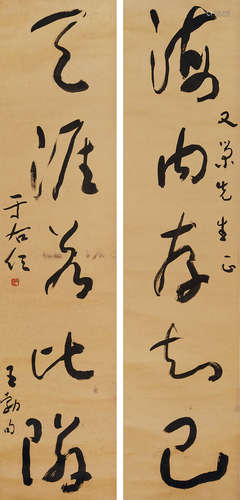 海内存知己
又荣先生正
天涯若比邻
王勃句
于右任